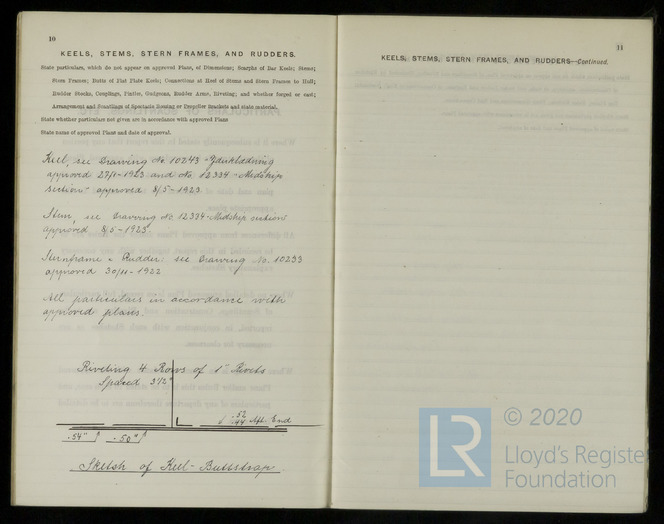 10
KEELS, STEMS, STERN FRAMES, AND RUDDERS.
State particulars, which do not appear on approved Plans, of Dimensions; Scarphs of Bar Keels; Stems;
Stern Frames; Butts of Flat Plate Keels; Connections at Heel of Stems and Stern Frames to Hull;
Rudder Stocks, Couplings, Pintles, Gudgeons, Rudder Arms, Riveting; and whether forged or cast;
Arrangement and Scantlings of Spectacle Bossing or Propeller Brackets and stain material.
State whether particulars not given are in accordance with approved Plans
State name of approved Plans and date of approval.
Keel, see Drawing No 10243 "Yderklædning
approved 27/1-1923 and No 12334 "Midship
section" approved 8/5-1923
Stem, see Drawing No. 12334 "Midship section"
approved 8/5-1923.
Sternframe & Rudder: see Drawing No. 10233
approved 30/11-1922
All particulars in accordance with
approved plans.
Riveting 4 Rows of 1" Rivets
Spaced 3 1/2"
.52
.44 Aft. End
.54" .50"
Sketch of Keel-Buttstrap
11
KEELS, STEMS, STERN FRAMES, AND RUDDERS—Continued.
LR
© 2020
Lloyd's Register
Foundation